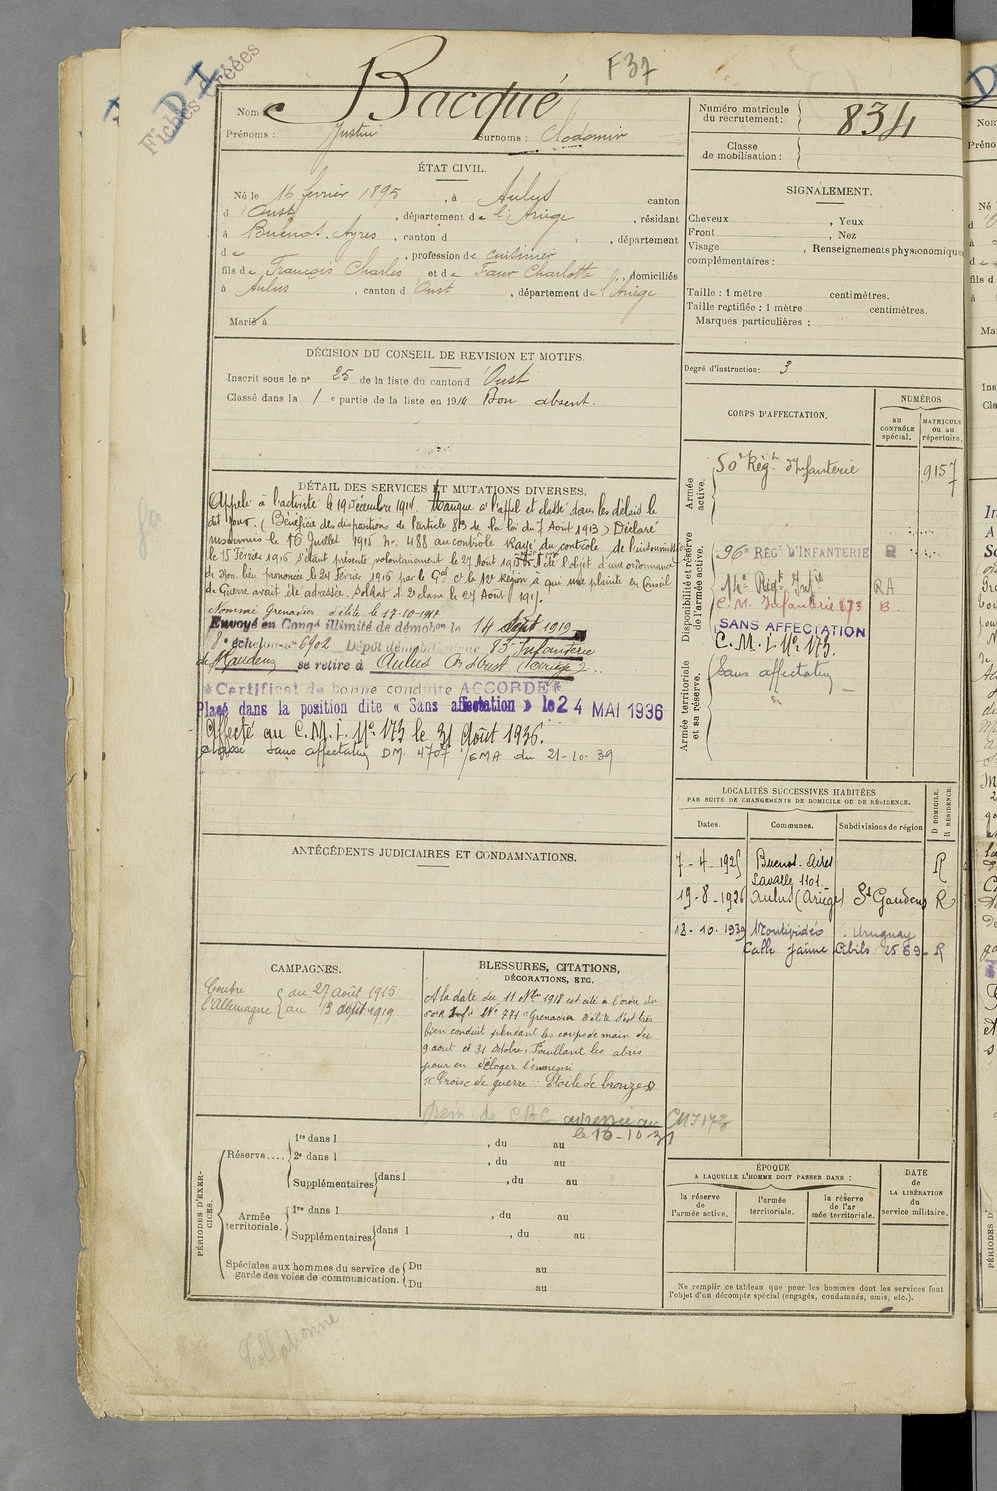 Fiches créées
DDI
F 37
Nom : Bacqué
Prénoms : Justin Surnoms : Clodomir
Numéro matricule du recrutement : 834
Classe de mobilisation :
ÉTAT CIVIL.
Né le 16 fevrier 1895, à Aulus canton
d'Oust, département de l'Ariège, résidant
à Buenos-Ayres, canton d , département
d , profession de cuisinier
fils de François Charles et de Faur Charlotte, domiciliés
à Aulus, canton d'Oust, département de l'Ariège
Marié à
SIGNALEMENT.
Cheveux , Yeux
Front , Nez
Visage , Renseignements physionomiques
complémentaires :
Taille : 1 mètre centimètres.
Taille rectifiée : 1 mètre centimètres.
Marques particulières :
Degré d'instruction : 3
DÉCISION DU CONSEIL DE REVISION ET MOTIFS.
Inscrit sous le n° 25 de la liste du canton d'Oust
Classé dans la 1e partie de la liste en 1914 Bon absent.
DÉTAIL DES SERVICES ET MUTATIONS DIVERSES.
Appelé à l'activité le 19 Décembre 1914. Manque à l'appel et classé dans les délais le
dit jour. (Bénéficie des dispositions de l'article 83 de la loi du 7 Août 1913) Déclaré
insoumis le 16 Juillet 1915 No. 488 au contrôle Rayé du contrôle de l'insoumission
le 15 Février 1916 S'étant présenté volontairement le 27 Août 1915 A été l'objet d'une ordonnance
de non lieu prononcée le 24 Février 1916 par le Gal Ct la 12e Région à qui une plainte en Conseil
de Guerre avait été adressée. Soldat de 2e classe le 27 Août 1915.
Nommé Grenadier d'élite le 17-10-1917
Envoyé en Congé illimité de démobon le 14 Sept 1919
8e échelon n° 6902 Dépôt démobilisateur 83e Infanterie
de St Gaudens se retire à Aulus Con d'Oust (Ariège).
*Certificat de bonne conduite ACCORDÉ*
Placé dans la position dite « Sans affectation » le 24 MAI 1936
Affecté au C.M.I. No 173 le 31 Août 1936.
Classé sans affectation DM. 4707 1/EMA du 21-10-39
CORPS D'AFFECTATION.
NUMÉROS
au CONTRÔLE spécial.
MATRICULE ou au répertoire.
Armée active.
50e Régt d'Infanterie 9157
Disponibilité et réserve de l'armée active.
96e RÉGt D'INFANTERIE
14e Régt Infie RA
C.M. Infanterie 173 B.
SANS AFFECTATION
C.M.I. No 173.
Armée territoriale et sa réserve.
Sans affectation
LOCALITÉS SUCCESSIVES HABITÉES
PAR SUITE DE CHANGEMENTS DE DOMICILE OU DE RÉSIDENCE.
Dates. Communes. Subdivisions de région D DOMICILE. R RÉSIDENCE.
7-4-1925 Buenos-Aires Lavalle 1101 R
19-8-1926 Aulus (Ariège) St Gaudens R
12-10-1939 Montévidéo Uruguay
Calle Jaime Cibils 2569 - R
ANTÉCÉDENTS JUDICIAIRES ET CONDAMNATIONS.
CAMPAGNES.
Contre l'Allemagne
du 27 août 1915
au 13 Sept 1919
BLESSURES, CITATIONS, DÉCORATIONS, ETC.
A la date du 11 Nbre 1918 est cité à l'ordre du
No 771 "Grenadier d'élite s'est très
bien conduit pendant les coups de main des
9 aout et 31 octobre, Fouillant les abris
pour en déloger l'ennemi
Croix de guerre : Etoile de bronze
le 16-10-31
CMI 173
PÉRIODES D'EXERCICES.
Réserve....
1re dans l , du au
2e dans l , du au
Supplémentaires dans l , du au
Armée territoriale.
1re dans l , du au
Supplémentaires dans l , du au
Spéciales aux hommes du service de garde des voies de communication.
Du au
Du au
ÉPOQUE
A LAQUELLE L'HOMME DOIT PASSER DANS :
la réserve de l'armée active.
l'armée territoriale.
la réserve de l'armée territoriale.
DATE de LA LIBÉRATION du service militaire.
Ne remplir ce tableau que pour les hommes dont les services font
l'objet d'un décompte spécial (engagés, condamnés, omis, etc.).
Collationné